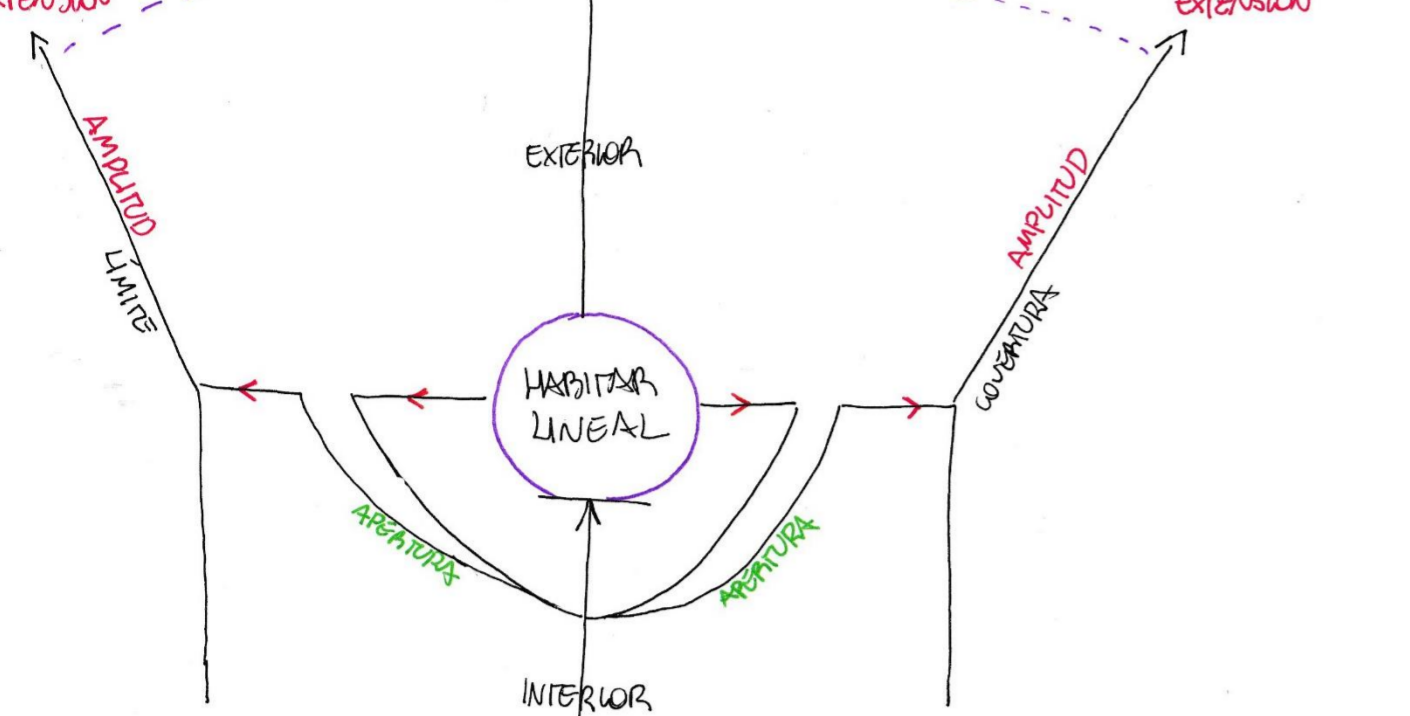 EXTENSIÓN
AMPLITUD
LÍMITE
EXTERIOR
AMPLITUD
COVERTURA
HABITAR
LINEAL
APERTURA
APERTURA
INTERIOR